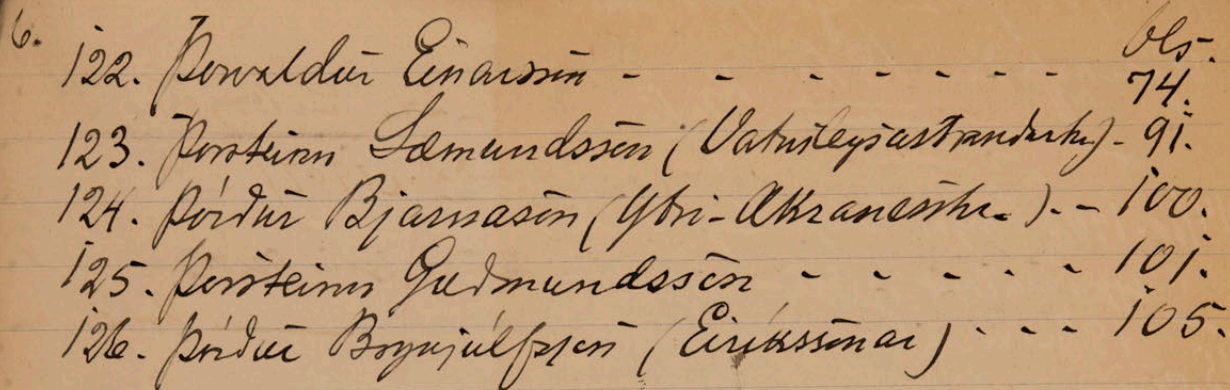 6. bls.
122. Þorvaldur Einarsson - - - - - - - 74.
123. Þorsteinn Sæmundsson (Vatnsleysustrandarhr) - 91.
124. Þórður Bjarnason (Ytri-Akraneshr.). - 100.
125. Þorsteinn Guðmundsson - - - - - 101.
126. Þórður Brynjúlfsson (Eiríkssonar) - - - 105.